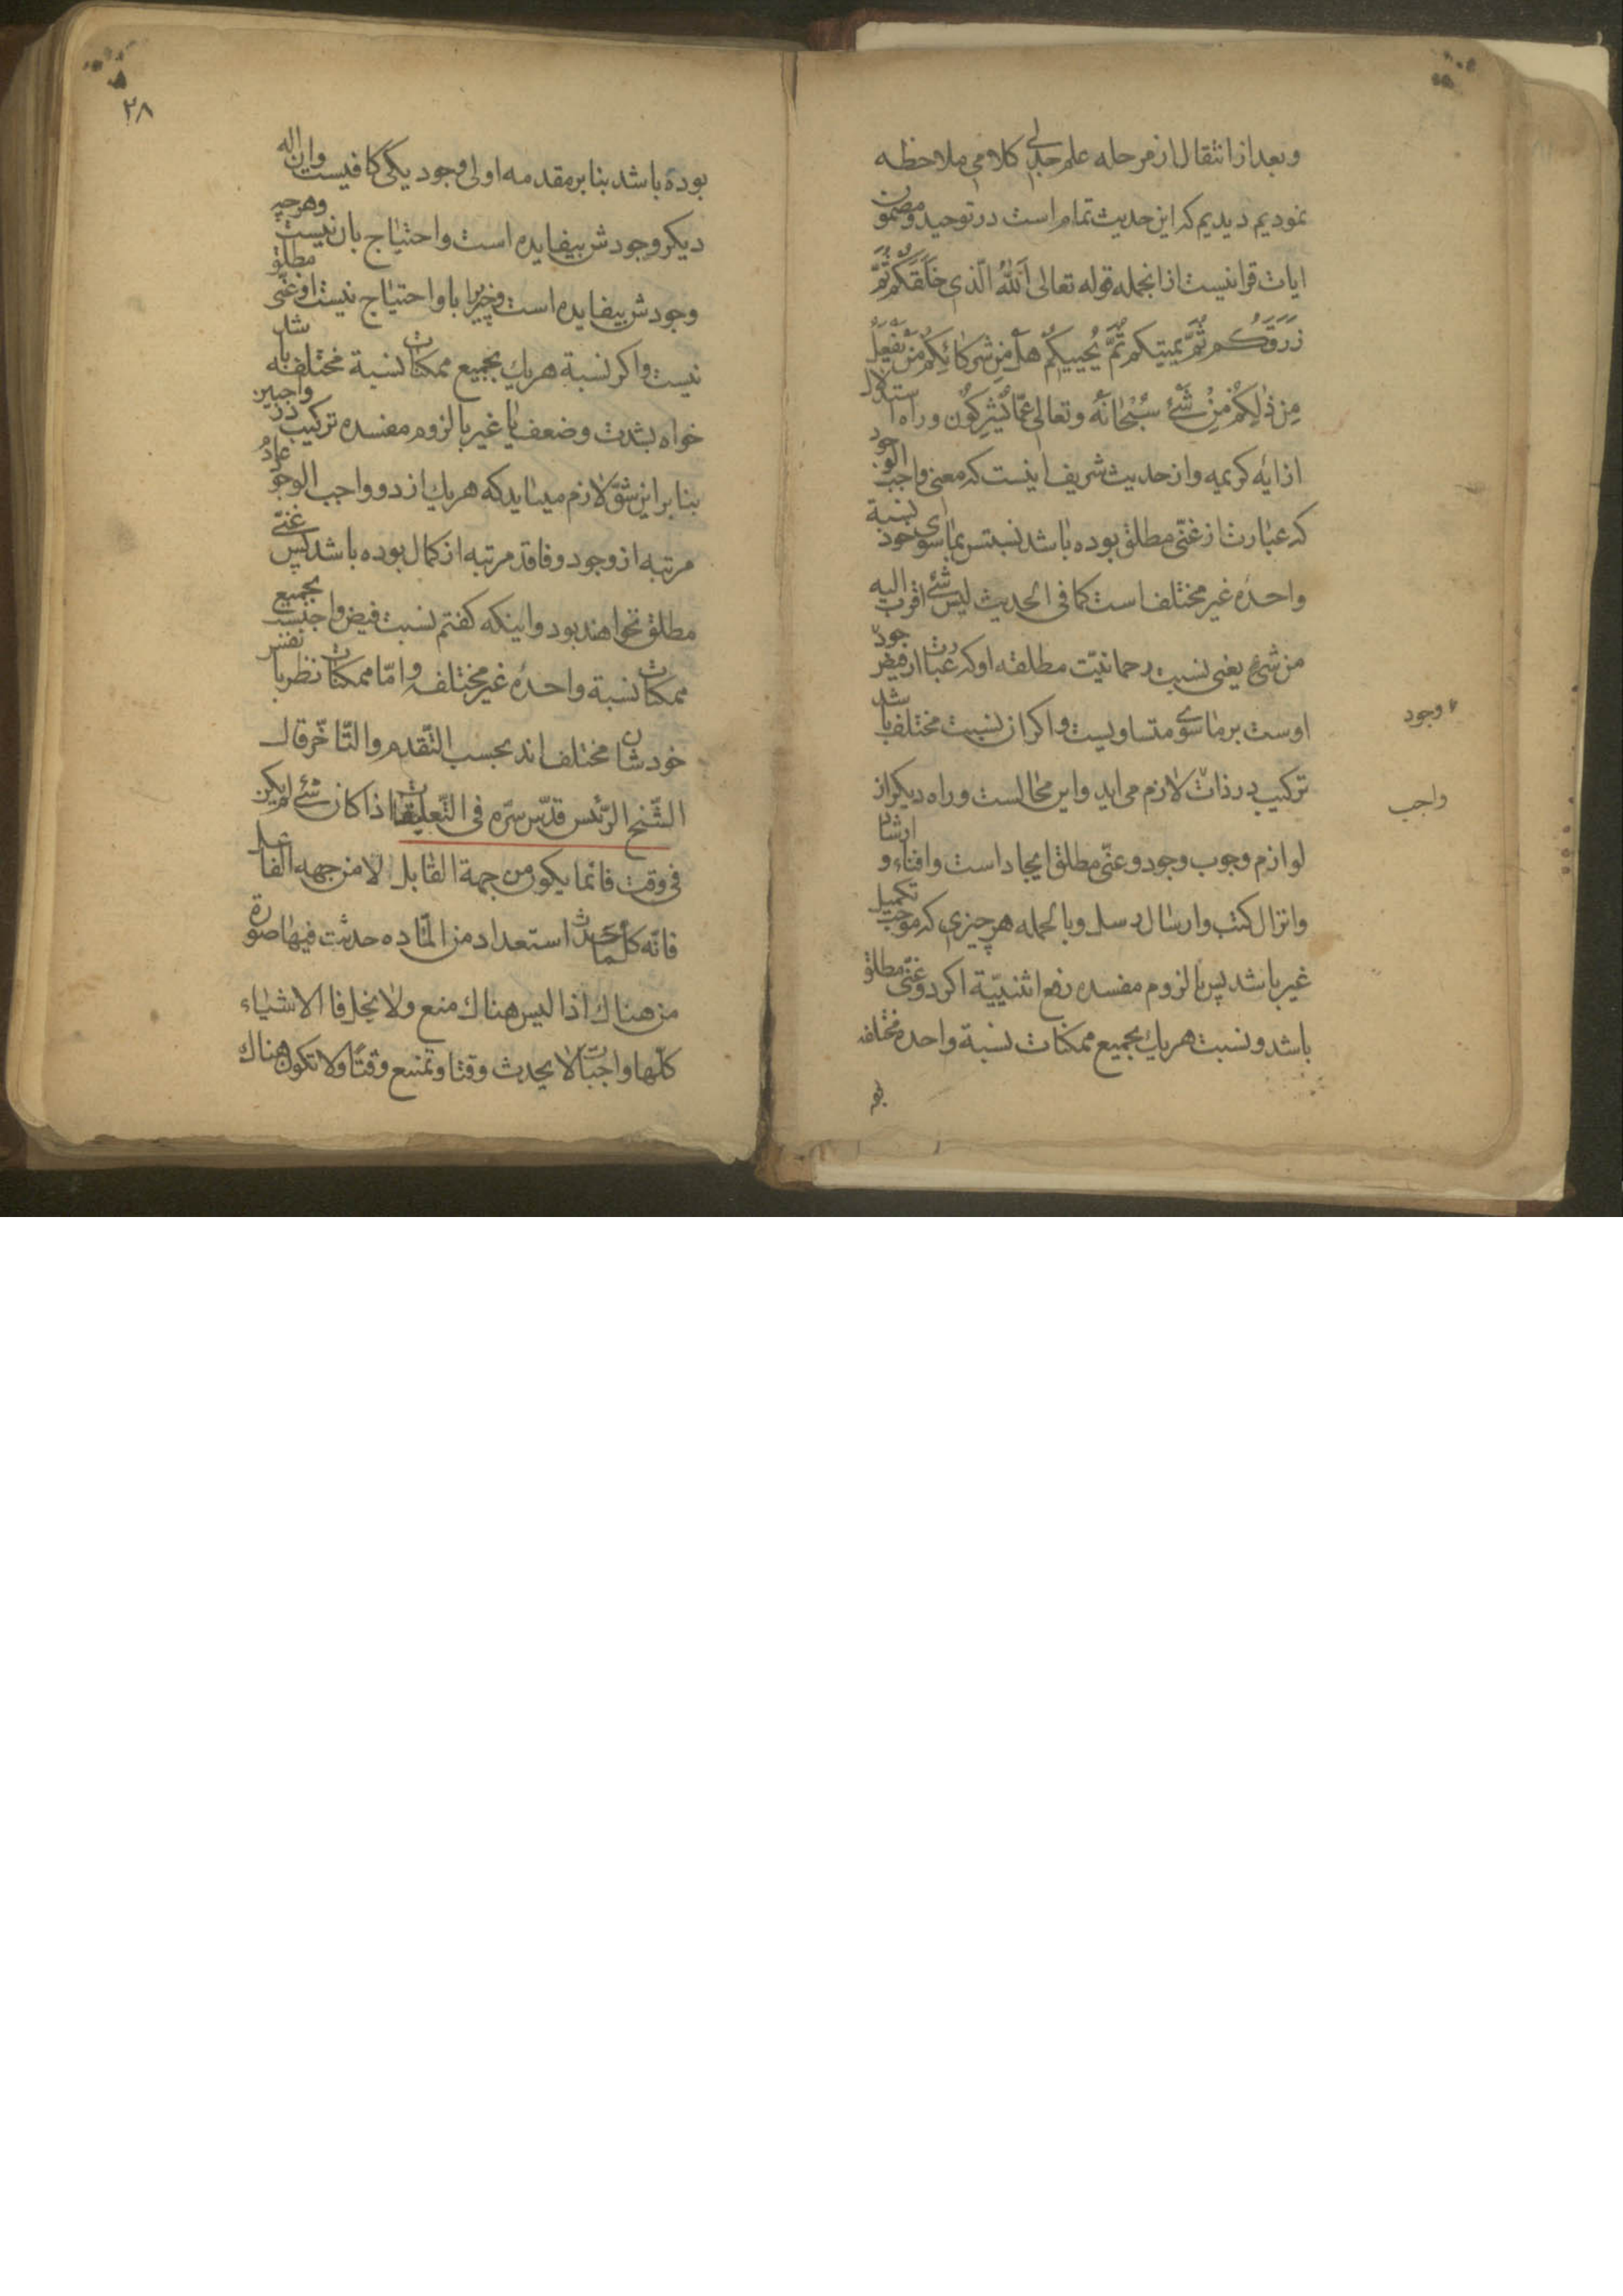 و بعد از انتقال از مرحله علم جدلی کلامی ملاحظه
نمودیم دیدیم که این حدیث تمام است در توحید و مضمون
ایات قرانیست از انجمله قوله تعالی اَللّهُ الَّذی خَلَقَکُم ثُمَّ
رَزَقَکُم ثُمَّ یمیتکم ثُمَّ یُحییکُم هَل مِن شُرکائِکُم مَن یَفعَلُ
مِن ذٰلِکُم مِن شَئ سُبحٰانَهُ و تعالی عَمّا یُشرِکُون و راه استدلال
از ایه کریمه و از حدیث شریف اینست که معنی واجب الوجود
که عبارت از غنّی مطلق بوده باشد نسبتش بما سوای خود نسبة
واحده غیر مختلف است کما فی الحدیث لیس شئ اقرب الیه
من شئ یعنی نسبت رحمانیّت مطلقه او که عبارت از فیض جود
اوست بر ما سوی متساویست و اکر از نسبت مختلف باشد
وجود
ترکیب در ذات لازم می اید و این محٰالست و راه دیکر از
واجب
لوازم وجوب وجود و غنّی مطلق ایجاد است و افناء و ارشاد
و انزال کتب و ارسال رسل و بالجمله هر چیزی که موجب تکمیل
غیر باشد پس بٰا لزوم مفسده رفع اثنیّیة اکر دو غنّی مطلق
باشد و نسبت هر یك بجمیع ممکنات نسبة واحده مختلفه
۲۸
بوده باشد بنا بر مقدمه اولی وجود یکی کافیست و ان اله
دیکر وجودش بیفایده است و احتیاج بان نیست و هر چه
وجودش بیفایده است و خیرا با و احتیاج نیست او غنّی مطلق
نیست و اکر نسبة هر یك بجمیع ممکنات نسبة مختلفه باشد
خواه بشدت و ضعف یا غیر با لزوم مفسده ترکیب در واجبین
بنا بر این شقّ لازم میٰاید که هر یك از دو واجب الوجود عادم
مرتبه از وجود و فاقد مرتبه از کمال بوده باشد پس غنّی
مطلق نخواهند بود و اینکه کفتم نسبت فیض واجبست بجمیع
ممکنات نسبة واحده غیر مختلفه و امّا ممکنات نظر با نفس
خودشان مختلف اند بحسب التّقدم و التّاخّر قال
الشّیخ الرّئیس قدّس سرّه فی التّعلیقات اذا کان شئ لم یکن
فی وقت فانما یکون من جهة القابل لا من جهه الفاعل
فانّه کلّما حدث استعداد من المّاده حدثت فیها صورة
من هناك اذا لیس هناك منع و لا بخل فا الاشیاء
کلّها واجبات لا یحدث وقتا و تمتنع وقتًا و لا تکون هناك